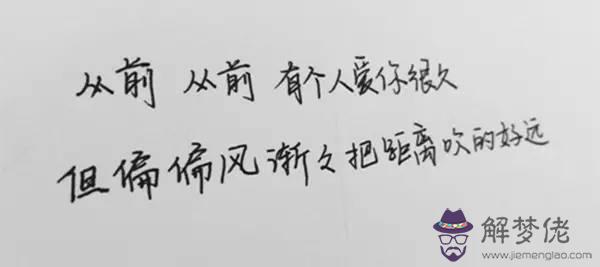 从前 从前 有个人爱你很久
但偏偏风渐々把距离吹的好远
解梦佬
www.jiemenglao.com